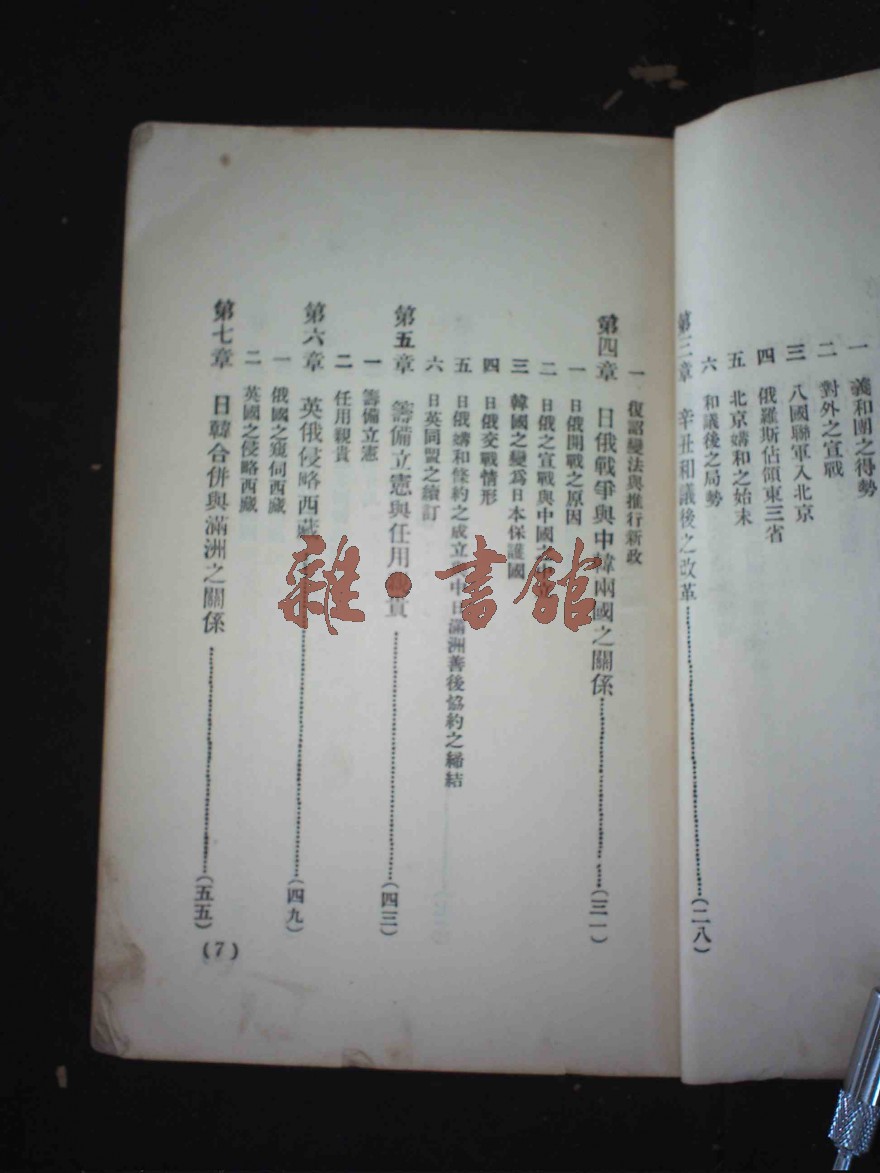 一 義和團之得勢
二 對外之宣戰
三 八國聯軍入北京
四 俄羅斯佔領東三省
五 北京媾和之始末
六 和議後之局勢
第三章 辛丑和議後之改革……(二八)
一 復詔變法與推行新政
第四章 日俄戰爭與中韓兩國之關係……(三一)
一 日俄開戰之原因
二 日俄之宣戰與中國之中立
三 韓國之變爲日本保護國
四 日俄交戰情形
五 日俄媾和條約之成立與中日滿洲善後協約之締結
六 日英同盟之續訂
第五章 籌備立憲與任用親貴……(四三)
一 籌備立憲
二 任用親貴
第六章 英俄侵略西藏……(四九)
一 俄國之窺伺西藏
二 英國之侵略西藏
第七章 日韓合併與滿洲之關係……(五五)
(7)
雜·書館